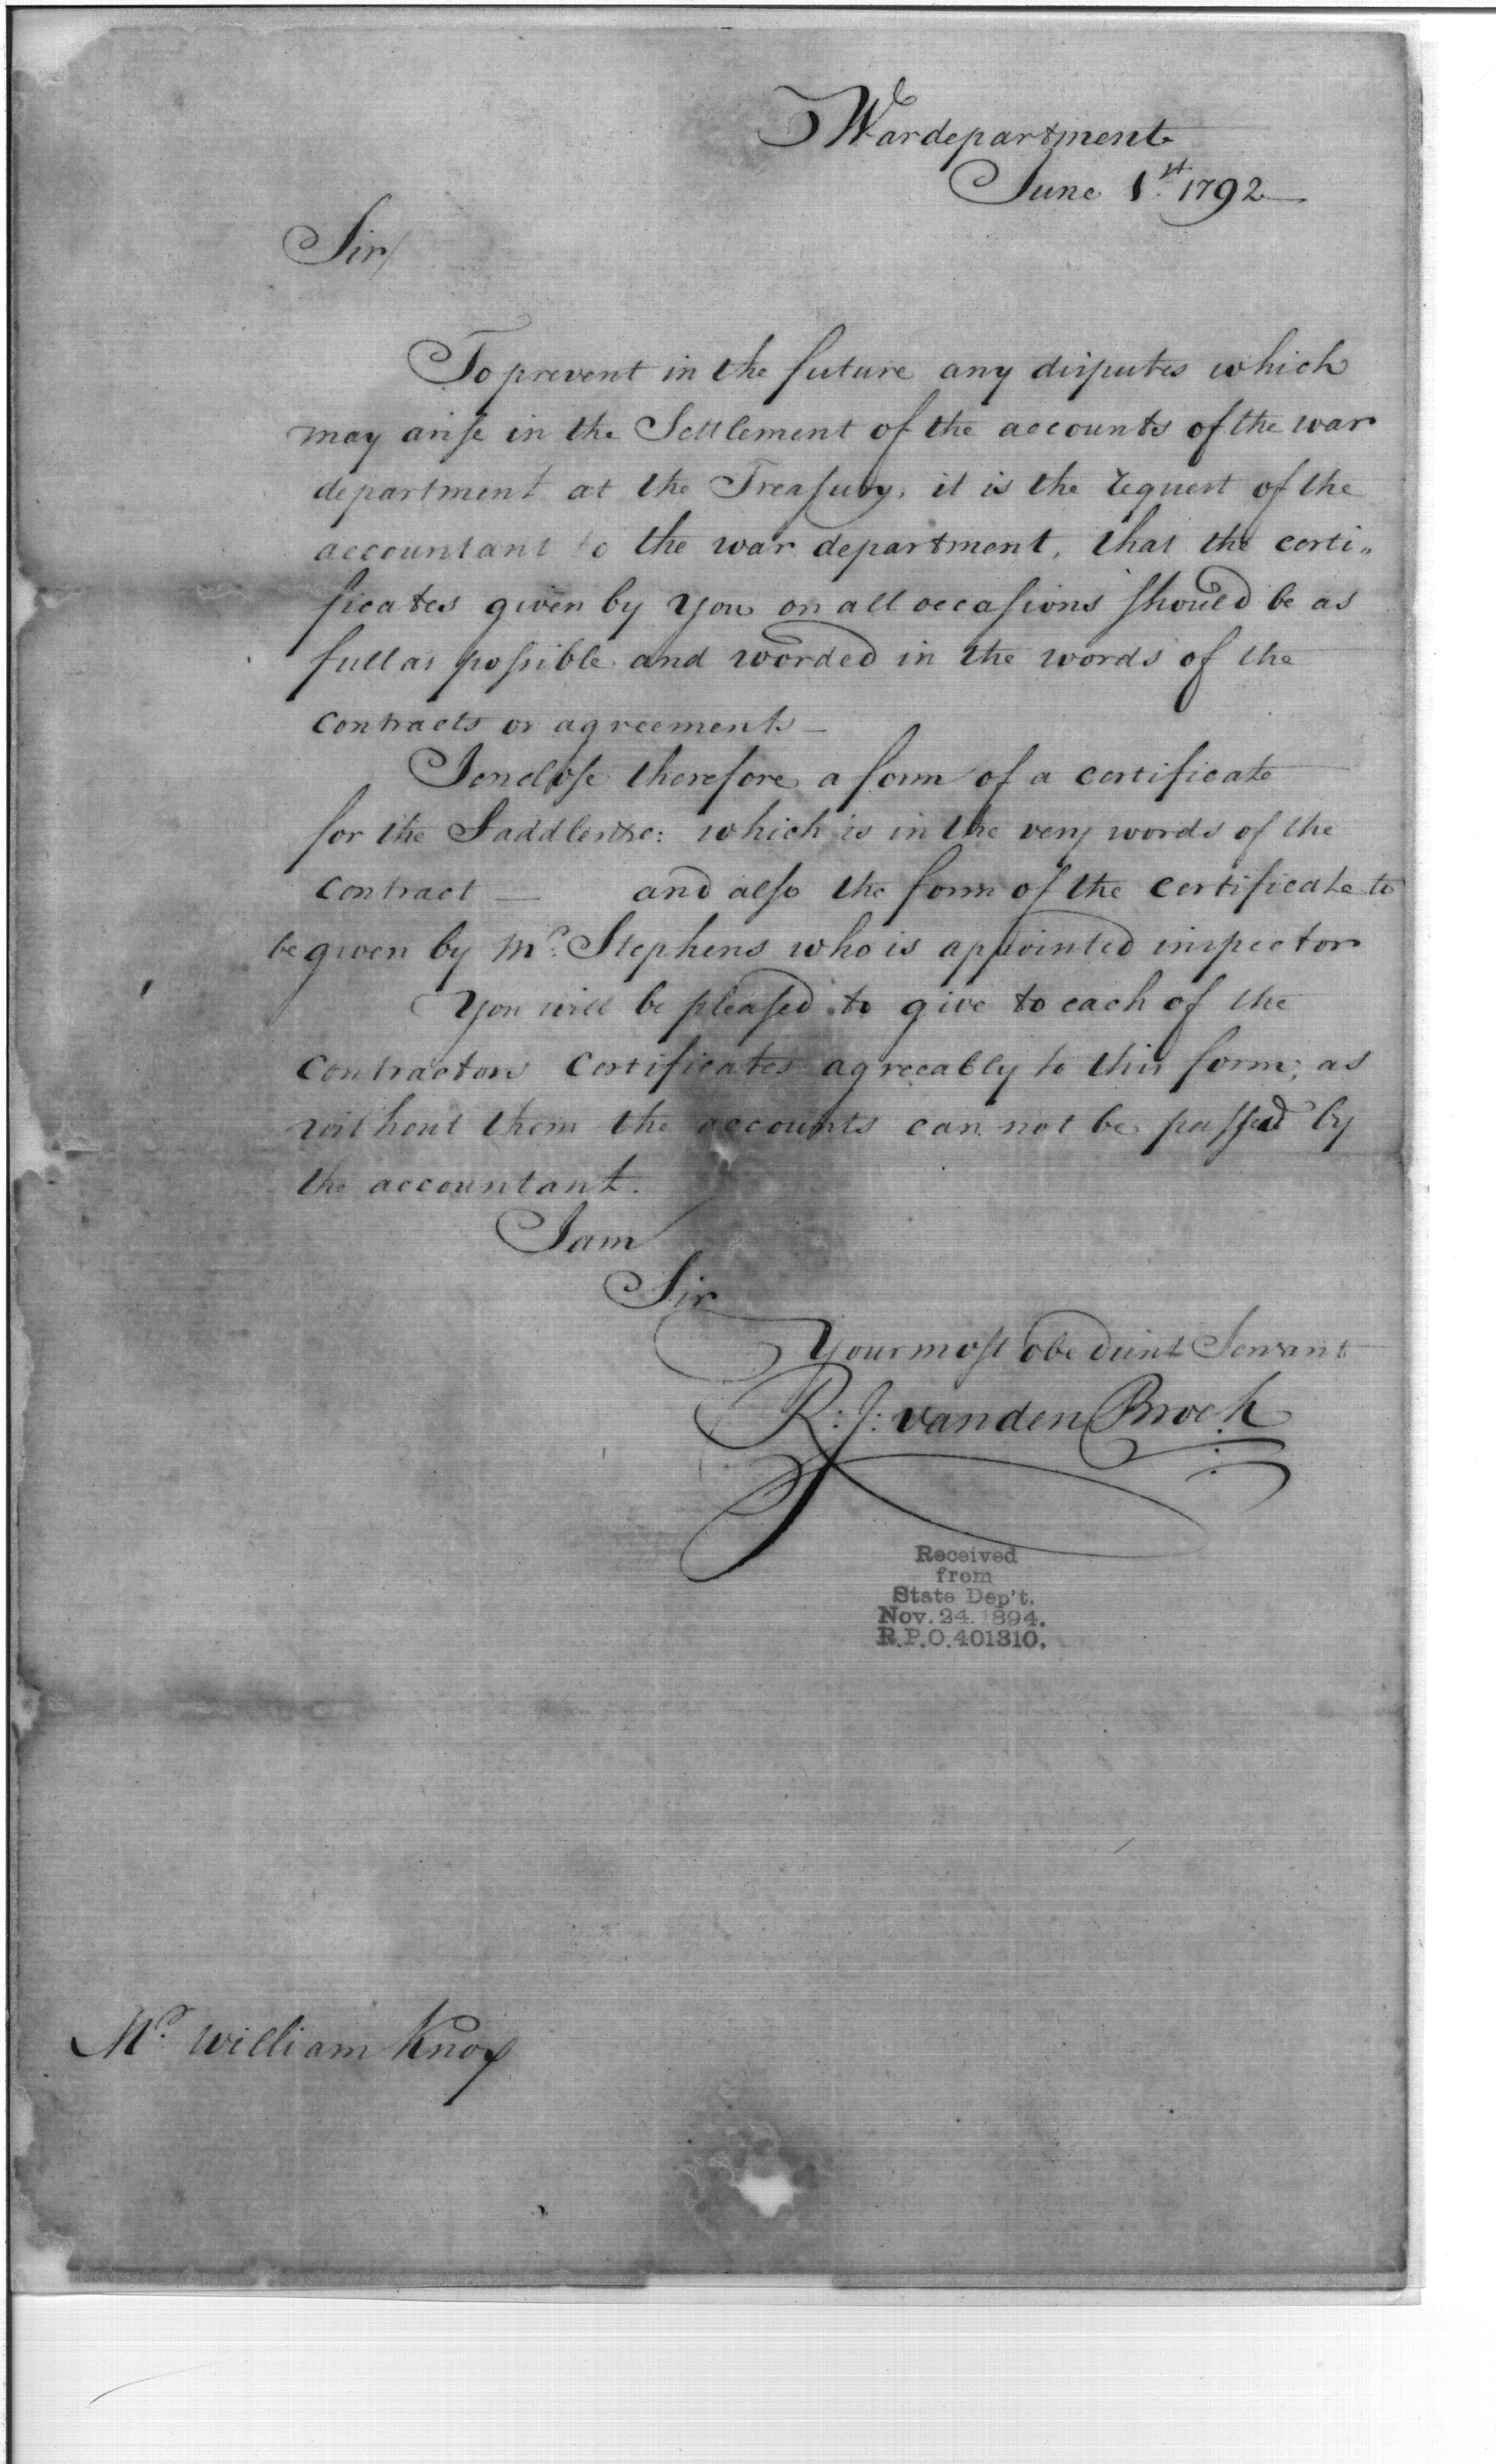 Wardepartment
June 1st. 1792
Sir/
To prevent in the future any disputes which
may arise in the Settlement of the accounts of the war
department at the Treasury, it is the request of the
accountant to the war department, that the certi„
ficates given by You on all occasions should be as
full as possible and worded in the words of the
contracts or agreements —
I enclose therefore a form of a certificate
for the Saddles &c: which is in the very words of the
contract — and also the form of the certificate to
be given by Mr. Stephens who is appointed inspector
You will be pleased to give to each of the
contractors certificates agreeably to this form; as
without them the accounts can not be passed by
the accountant.
I am
Sir
Your most obedient Servant
R: J: vanden Broek
Received
from
State Dep't.
Nov. 24. 1894.
R.P.O. 401310.
Mr. William Knox